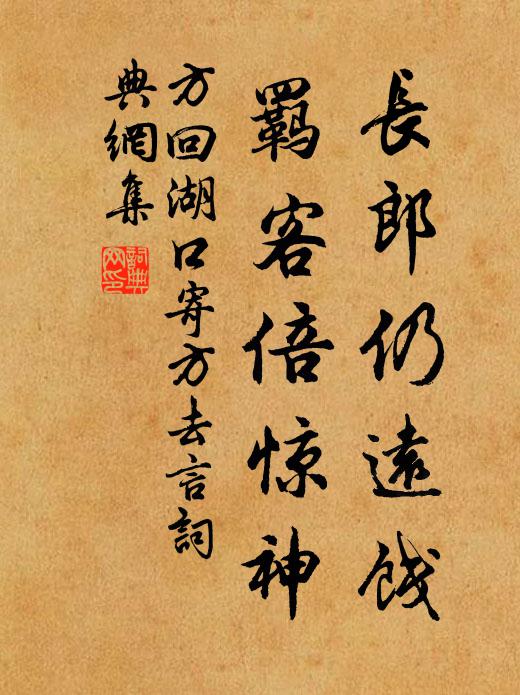 長郎仍遠餞
羈客倍惊神
方回湖口寄方去言詞
典網集
詞典
网印